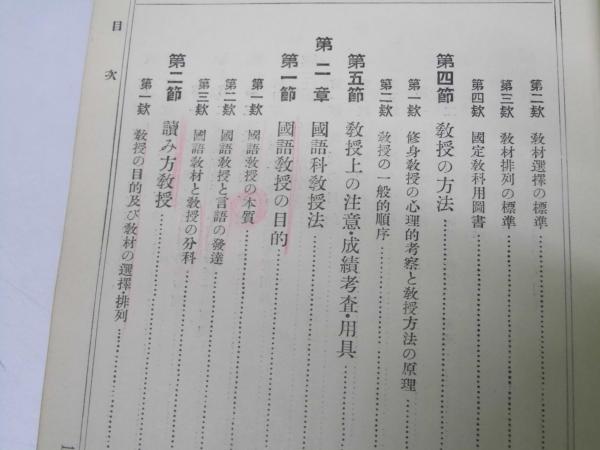 第二欵 敎材選擇の標準
第三欵 敎材排列の標準
第四欵 國定敎科用圖書
第四節 敎授の方法
第一欵 修身敎授の心理的考察と敎授方法の原理
第二欵 敎授の一般的順序
第五節 敎授上の注意・成績考査・用具
第二章 國語科敎授法
第一節 國語敎授の目的
第一欵 國語敎授の本質
第二欵 國語敎授と言語の發達
第三欵 國語敎材と敎授の分科
第二節 讀み方敎授
第一欵 敎授の目的及び敎材の選擇・排列
目次